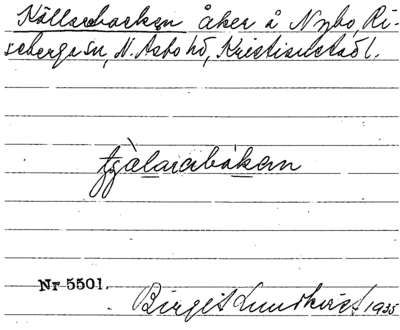 Källarebacken åker å Nybo, Ri-
seberga sn, N. Åsbo hd, Kristianstads l.
Nr 5501.
Birgit Lundkvist 1935